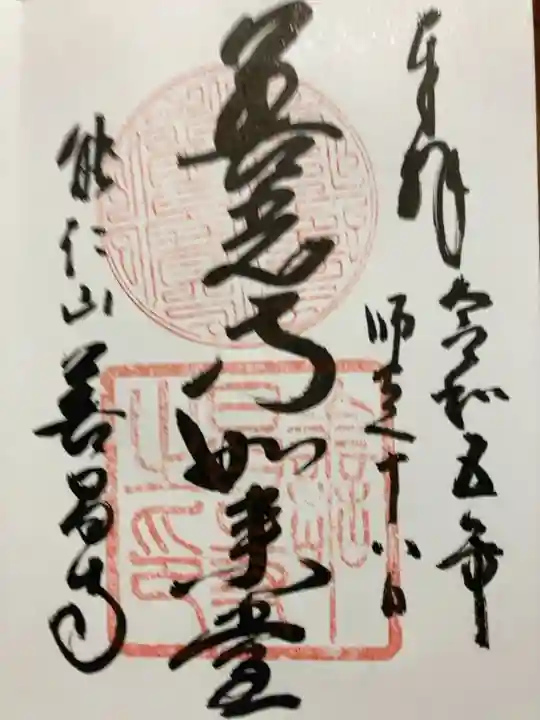 奉拝 令和五年
師走十八日
善光寺如来堂
能仁山 善昌寺